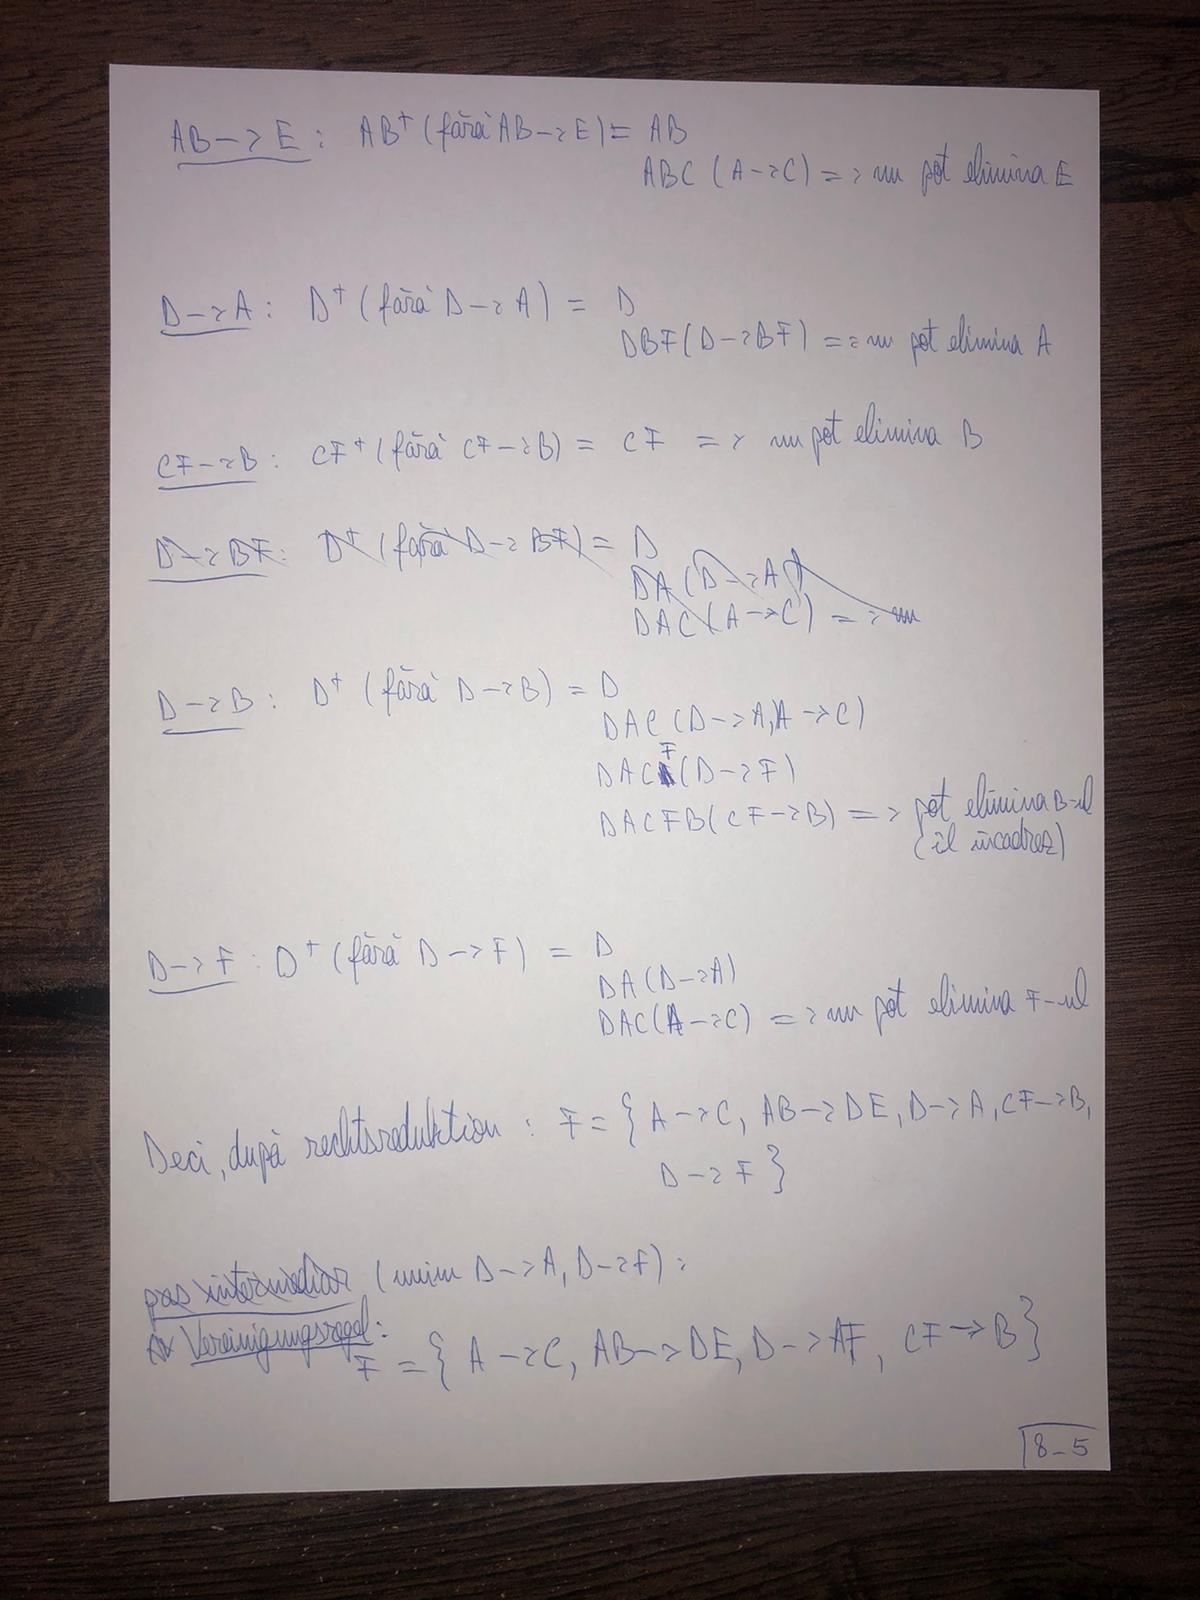 AB->E: AB⁺(fără AB->E)= AB
ABC (A->C) => nu pot elimina E
D->A: D⁺(fără D->A) = D
DBF(D->BF) => nu pot elimina A
CF->B: CF⁺(fără CF->B) = CF => nu pot elimina B
D->BF: D⁺(fără D->BF) = D
DA(D->A)
DAC(A->C) => nu
D->B: D⁺(fără D->B) = D
DAC(D->A,A->C)
DACF(D->F)
DACFB(CF->B) => pot elimina B-ul
(îl încadrez)
D->F: D⁺(fără D->F) = D
DA(D->A)
DAC(A->C) => nu pot elimina F-ul
Deci, după rechtsreduktion: F={A->C, AB->DE, D->A, CF->B,
D->F}
pas intermediar (unim D->A, D->F):
Vereinigungsregel:
F={A->C, AB->DE, D->AF, CF->B}
8-5